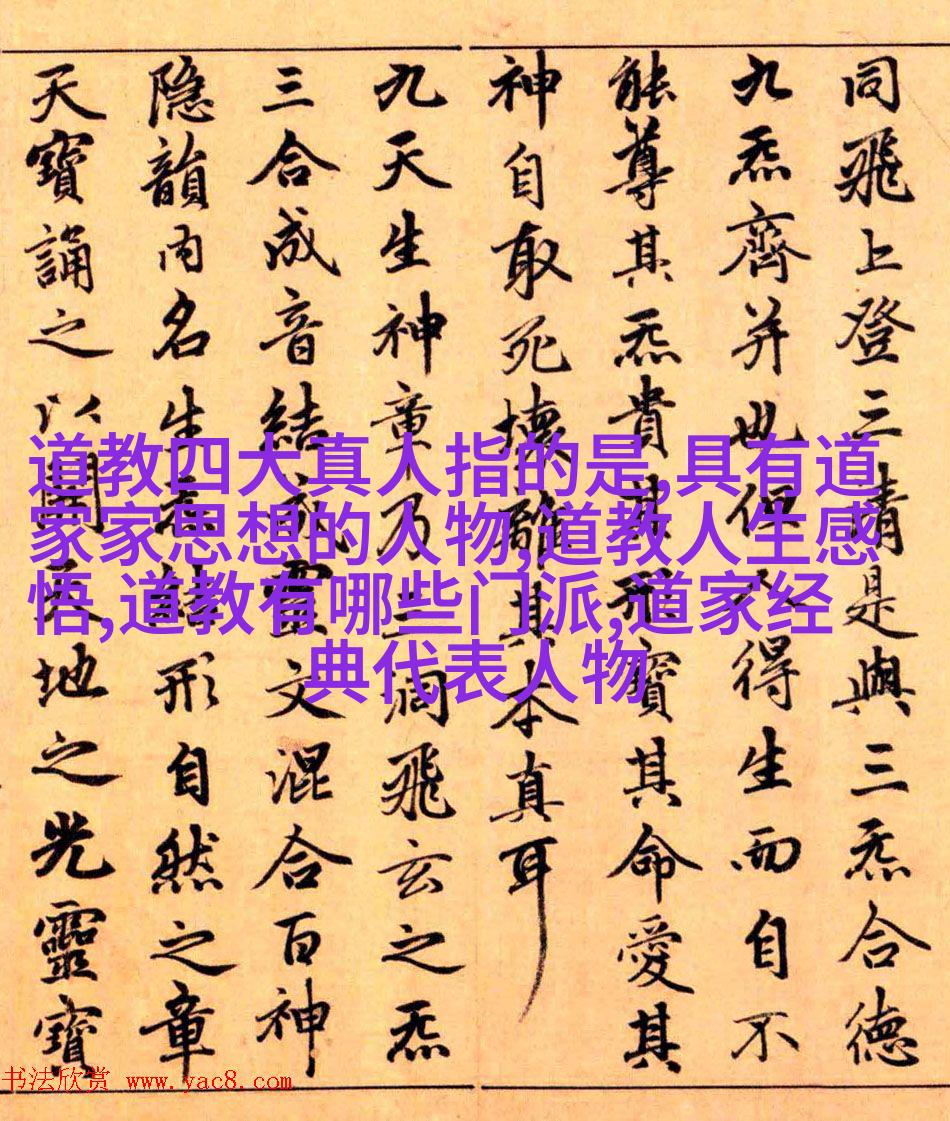 同飛上登三清是與三炁合德
九炁齊并也但人得生而自不
能尊其炁貴其形寶其命愛其
神自取死壞離其本真耳
九天生神章乃三洞飛玄之炁
三合成音結成靈文混合百神
隐韻内名生炁結形自然之章
天寶誦之以開天地之光靈寶
道教四大真人指的是,具有道
家家思想的人物,道教人生感
悟,道教有哪些门派,道家经
典代表人物
书法欣赏 www.yac8.com